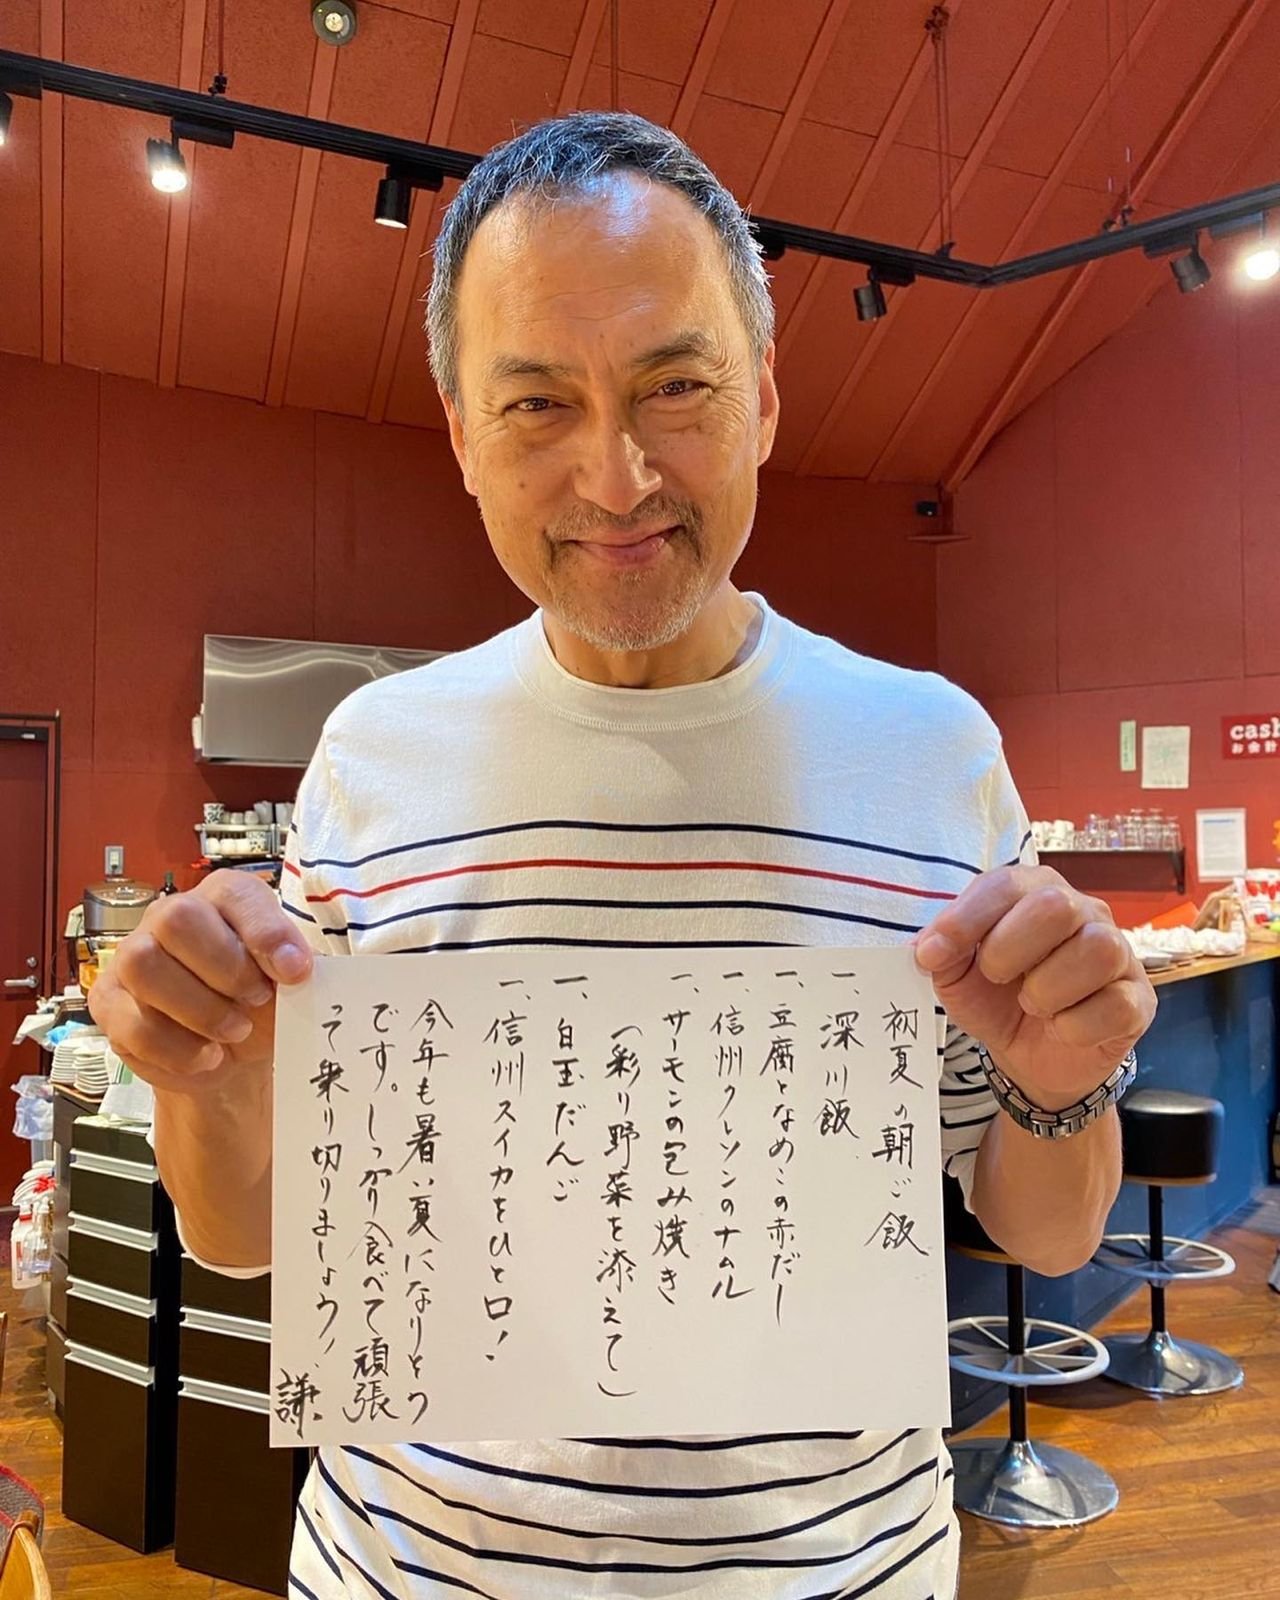 初夏の朝ご飯
一、深川飯
一、豆腐となめこの赤だし
一、信州クレソンのナムル
一、サーモンの包み焼き
（彩り野菜を添えて）
一、白玉だんご
一、信州スイカをひと口！
今年も暑い夏になりそう
です。しっかり食べて頑張
って乗り切りましょう！
謙。
cash
お会計